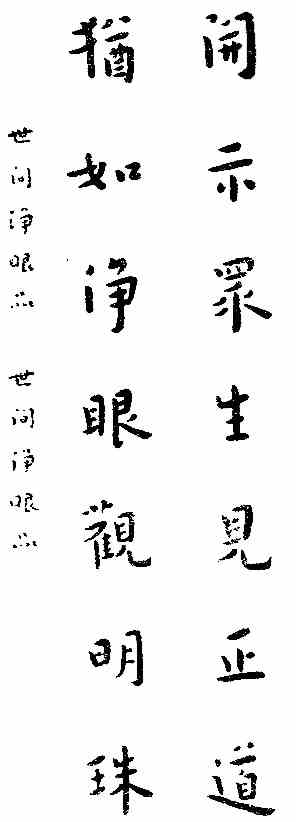 開示眾生見正道
猶如淨眼觀明珠
世间淨眼品 世间淨眼品